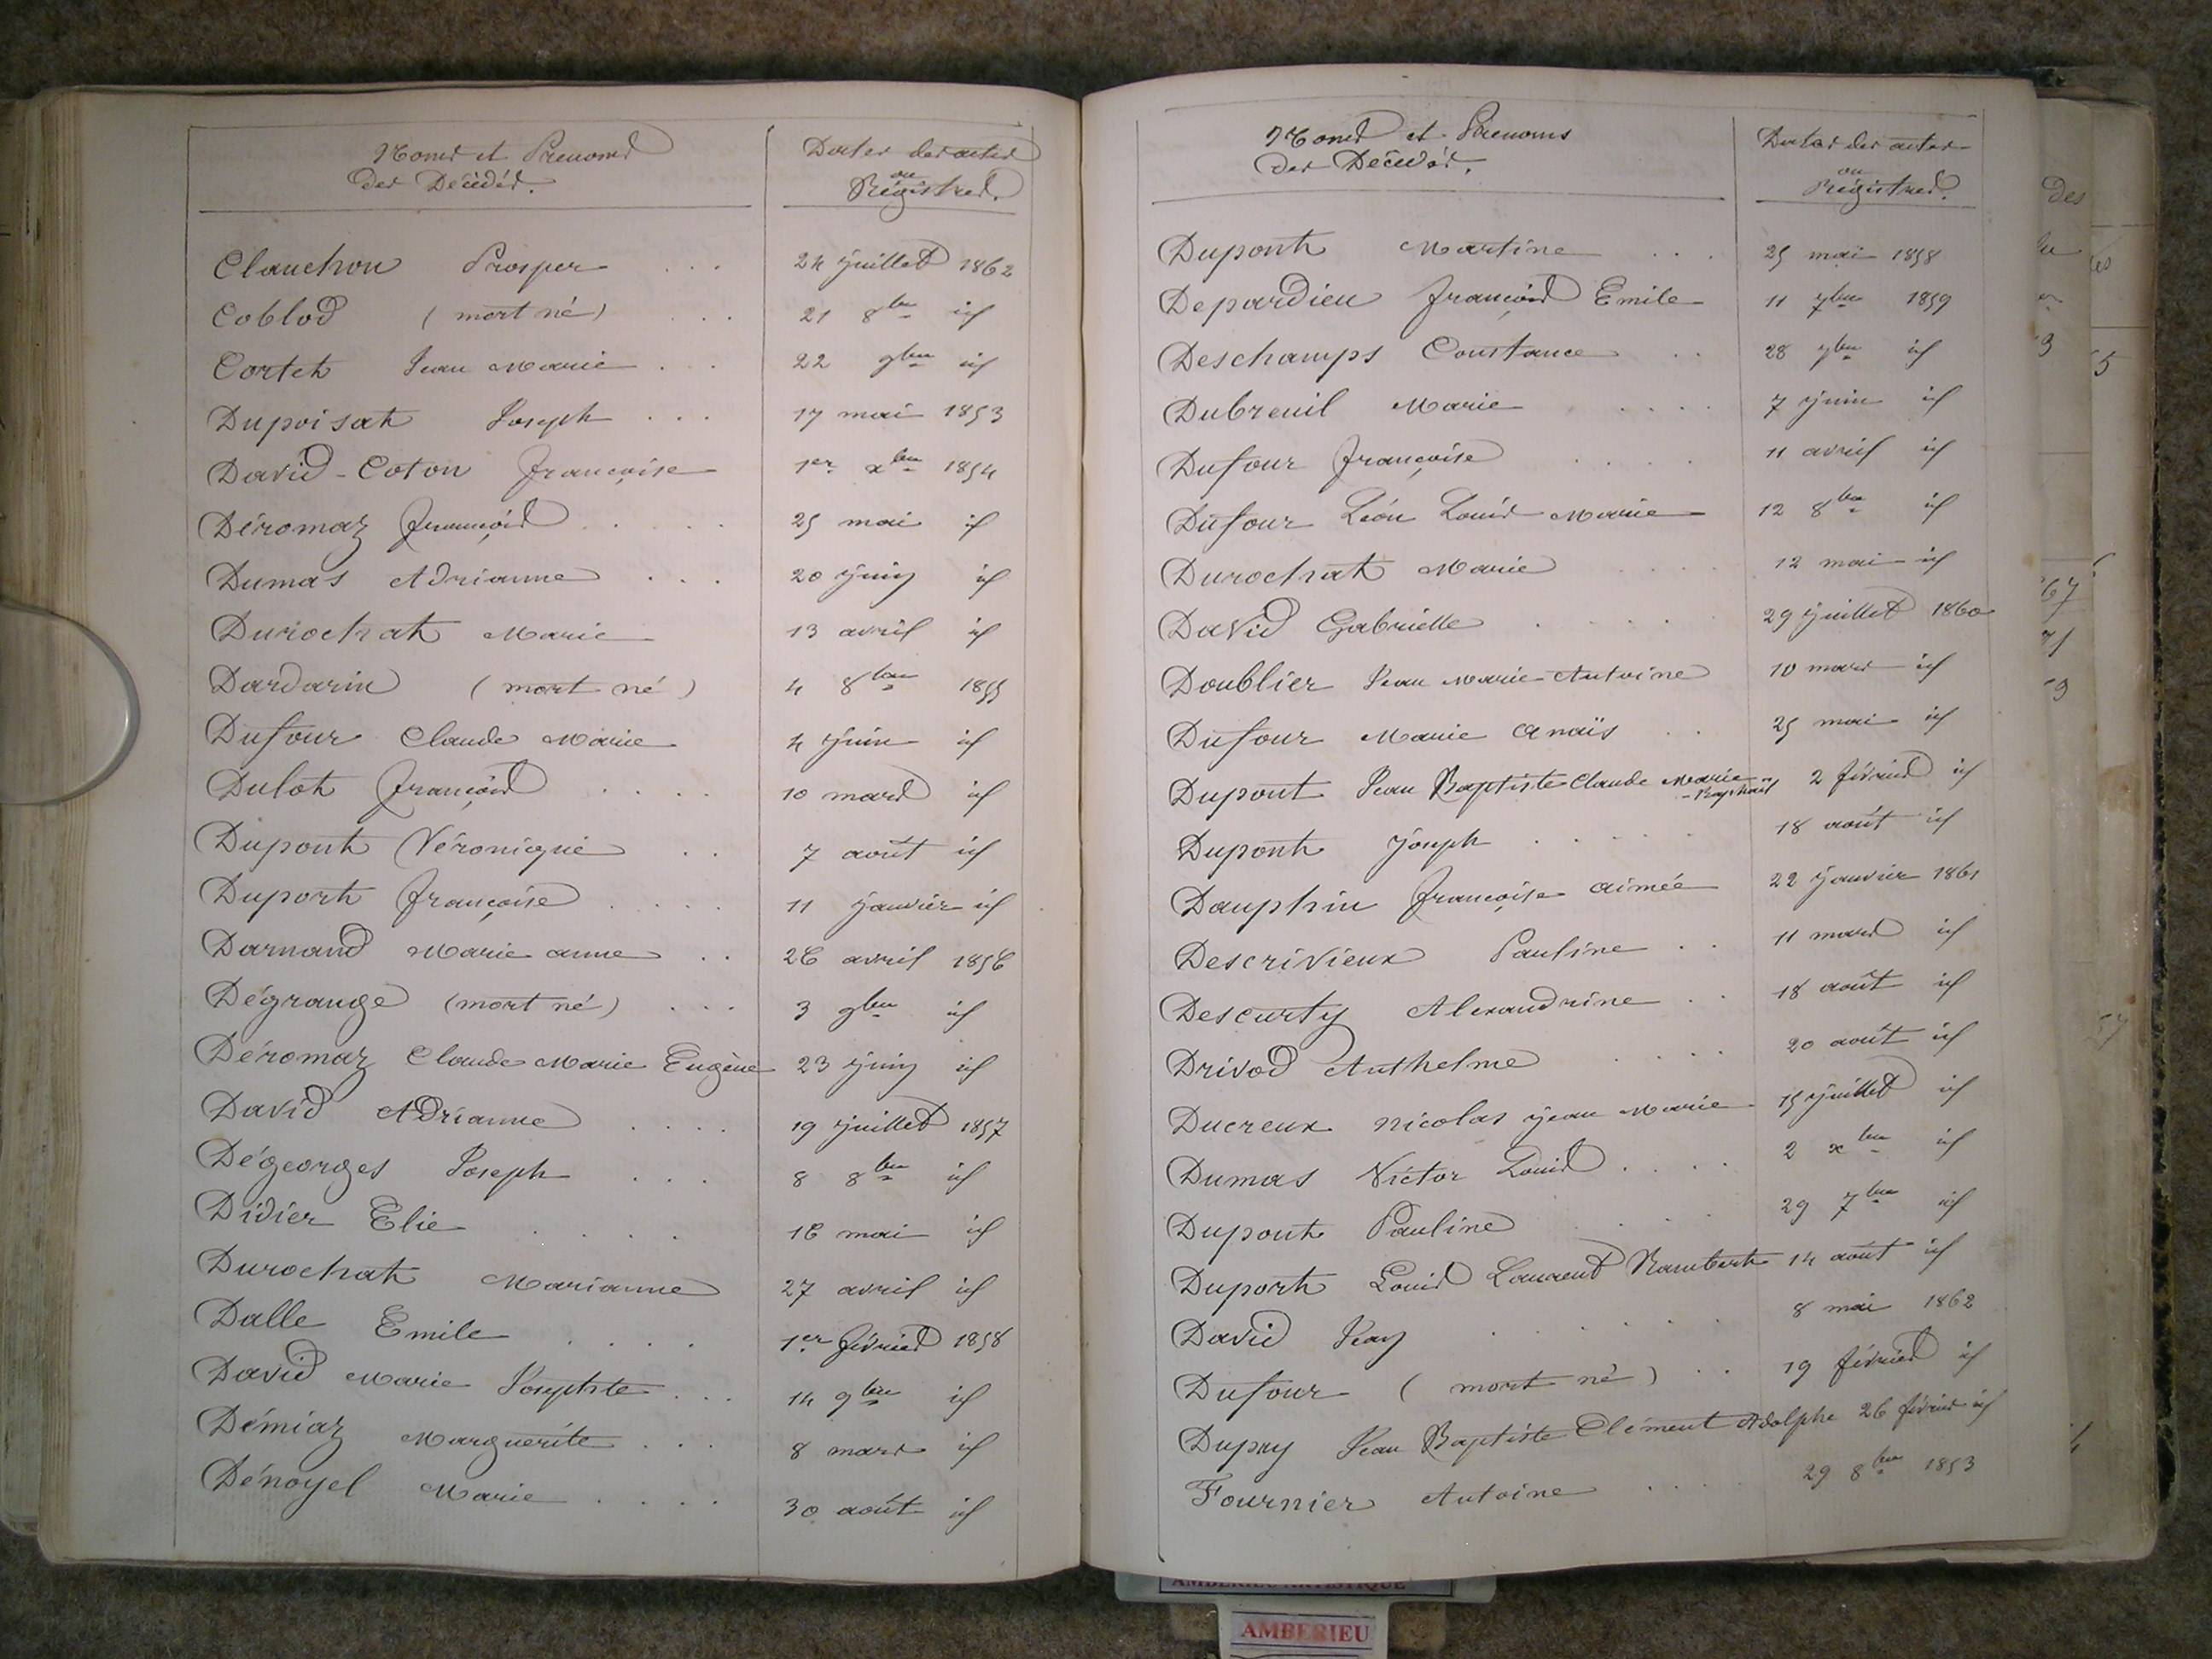 Noms et Prénoms
des Décédés.
Dates des actes
au
Régistres.
Clauchon Prosper ... 24 juillet 1862
Coblod (mort né) ... 21 8bre id
Cortet Jean Marie ... 22 9bre id
Dupoisat Joseph ... 17 mai 1853
David-Coton Françoise 1er xbre 1854
Déromaz François ..... 25 mai id
Dumas Adrianne ... 20 juin id
Durochat Marie 13 avril id
Dardarin (mort né) 4 8bre 1855
Dufour Claude Marie 4 juin id
Dulot François .... 10 mars id
Dupont Véronique .. 7 août id
Duport Françoise .... 11 janvier id
Darnand Marie anne .. 26 avril 1856
Dégrange (mort né) ... 3 9bre id
Déromaz Claude Marie Eugène 23 juin id
David Adrianne .... 19 juillet 1857
Dégeorges Joseph ... 8 8bre id
Didier Elie .... 16 mai id
Durochat Marianne 27 avril id
Dalle Emile .... 1er février 1858
David Marie Josephte ... 14 9bre id
Démiaz Marguerite ... 8 mars id
Dénoyel Marie .... 30 août id
Noms et Prénoms
des Décédés.
Dates des actes
au
Régistres.
Dupont Martine ... 25 mai 1858
Depardieu François Emile 11 7bre 1859
Deschamps Constance .. 28 9bre id
Dubreuil Marie ..... 7 juin id
Dufour Françoise .... 11 avril id
Dufour Léon Louis Marie 12 8bre id
Durochat Marie .... 12 mai id
David Gabrielle ..... 29 juillet 1860
Doublier Jean Marie Antoine 10 mars id
Dufour Marie Anaïs .. 25 mai id
Dupont Jean Baptiste Claude Marie 2 février id
-Raphaël
Dupont Joseph ..... 18 août id
Dauphin Françoise aimée 22 janvier 1861
Descrivieux Pauline .. 11 mars id
Descurty Alexandrine .. 18 août id
Drivod Anthelme .... 20 août id
Ducreux nicolas jean Marie 15 juillet id
Dumas Victor Louis .... 2 xbre id
Dupont Pauline .... 29 7bre id
Duport Louis Laurent Rambert 14 août id
David Jean ...... 8 mai 1862
Dufour (mort né) .. 19 février id
Dupuy Jean Baptiste Clément Adolphe 26 février id
Fournier Antoine .... 29 8bre 1853
des
67
71
3
5
AMBERIEU ARTISTIQUE
AMBERIEU